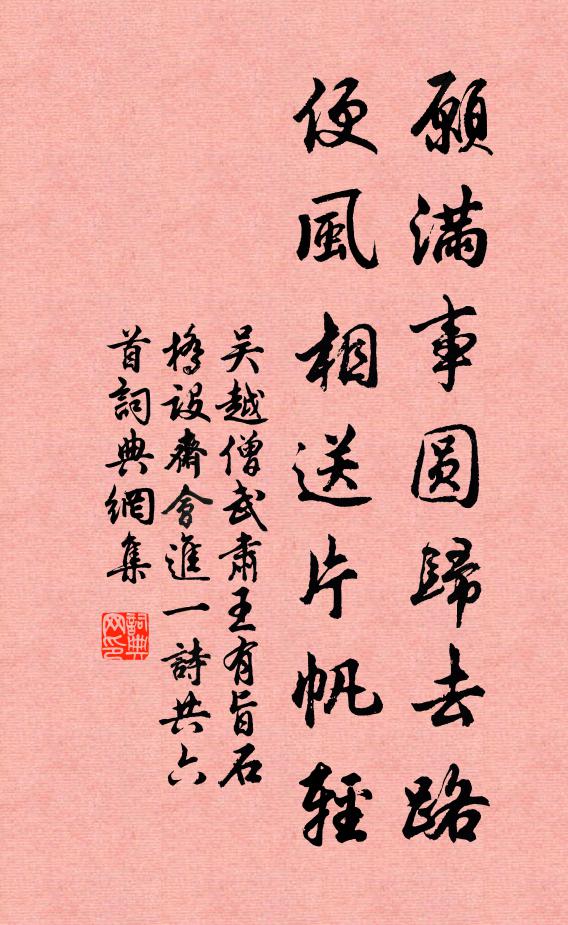 願滿事圓歸去路
便風相送片帆輕
吳越僧武肅王有旨石
橋設齋會進一詩共六
首詞典網集
詞典
网印